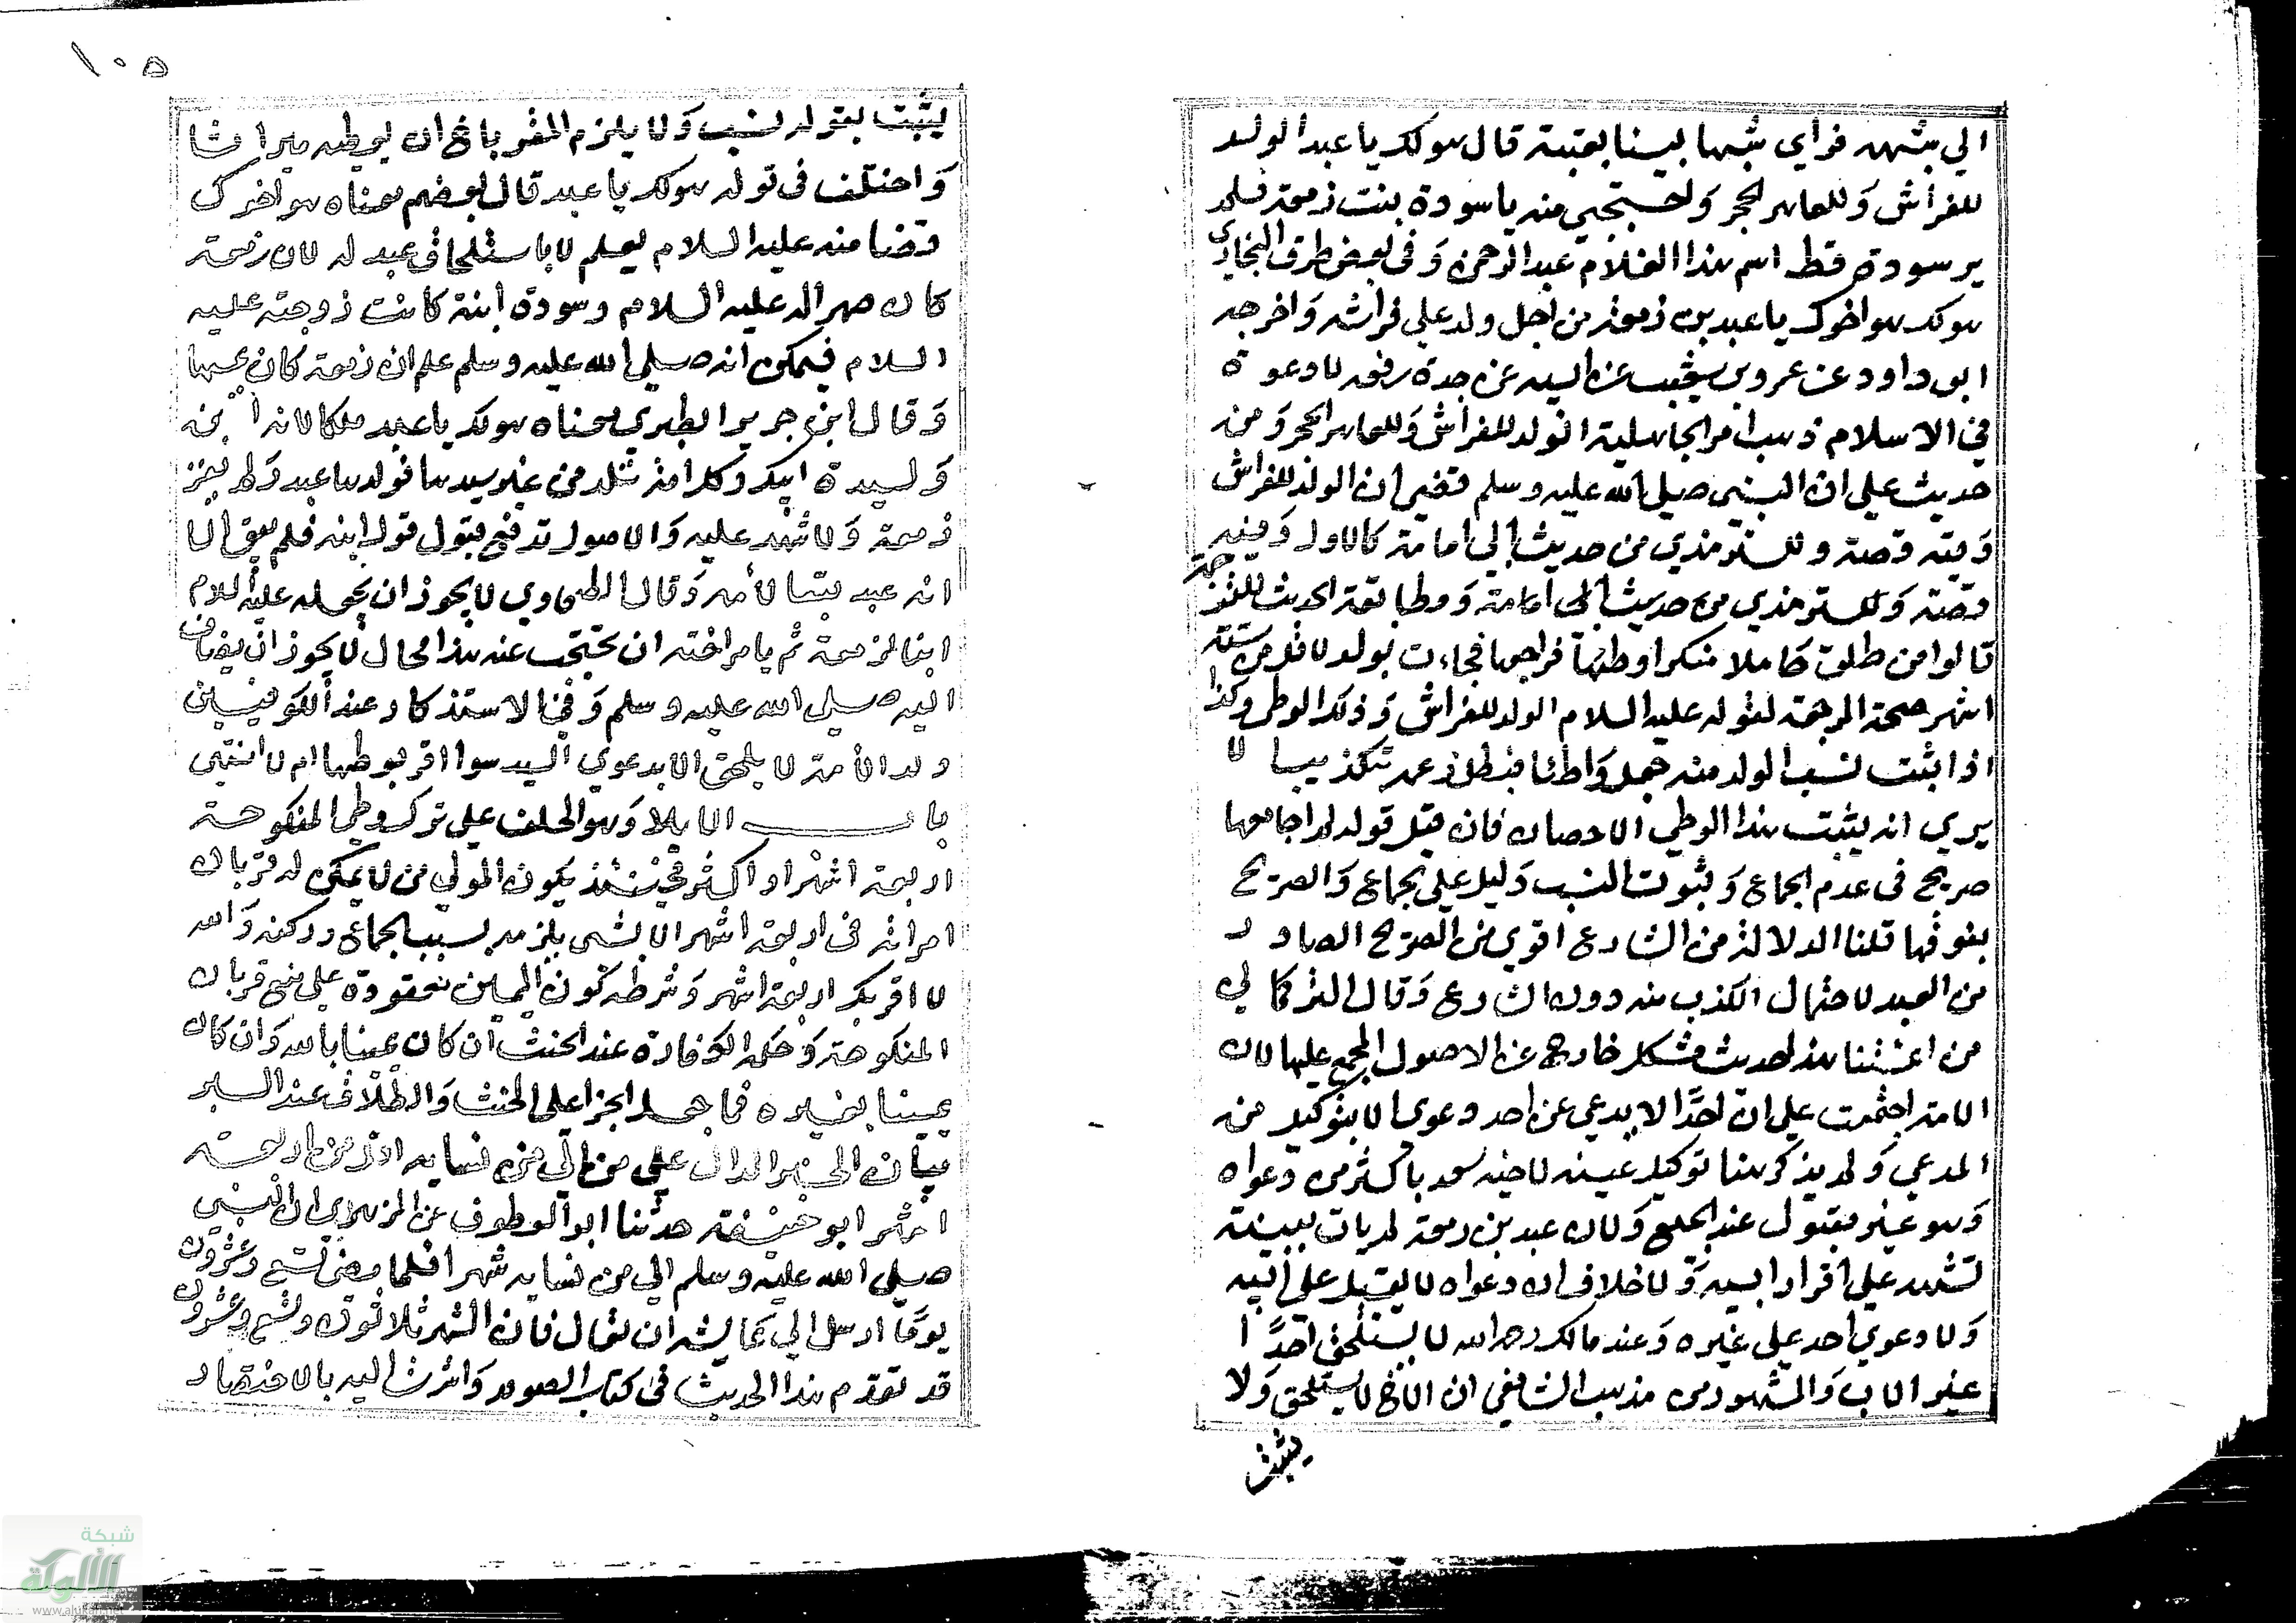 الي شبهه فراي شبها بينا بعتبة قال هو لك يا عبد الولد
للفراش وللعاهر الحجر واحتجبي منه يا سودة بنت زمعة فلم
ير سودة قط اسم هذا الغلام عبد الرحمن وفي بعض طرق البخاري
هو لك هو اخوك يا عبد بن زمعة من اجل ولد علي فراشه واخرجه
ابو داود عن عمرو بن شعيب عن ابيه عن جده رفعه لا دعوة
في الاسلام ذهب امر الجاهلية الولد للفراش وللعاهر الحجر ومن
حديث علي ان النبي صلي الله عليه وسلم قضي ان الولد للفراش
وفيه قصة وللترمذي من حديث ابي امامة كالاول وفيه
قصة وللترمذي من حديث ابي امامة ومطابقة الحديث للترجمة
قالوا من طلق حاملا منكرا وطئها فراجعها فجاءت بولد لاقل من ستة
اشهر صحت الرجعة لقوله عليه السلام الولد للفراش وذلك الوطي وكذا
اذا ثبت نسب الولد منه جعل واطئا فبطل زعمه تكذيبا لا
يري انه يثبت هذا الوطي الاحصان فان قيل قوله لم اجامعها
صريح في عدم الجماع وثبوت النسب دليل علي الجماع والصريح
بفوقها قلنا الدلالة من الشارع اقوي من الصريح الصادر
من العبد لاحتمال الكذب منه دون الشارع وقال التركماني
من اعتننا هذا الحديث مشكل خارج عن الاصول المجمع عليها لان
الامة اجتمعت علي ان احدا لا يدعي عن احد دعوي الا بتوكيل من
المدعي ولم يذكر هنا توكيل عتبة لاخيه سعد باكثر من دعواه
وهو غير مقبول عند الجميع ولان عبد بن زمعة لم يات ببينة
تشهد علي اقرار ابيه ولا خلاف ان دعواه لا يقبل علي ابيه
ولا دعوي احد علي غيره وعند مالك رحمه الله لا يستلحق احدا
غير الاب والمشهور من مذهب الشافعي ان الاخ لا يستلحق ولا
يثبت
١٠٥
يثبت بقوله نسب ولا يلزم المقر باخ ان يعطيه ميراثا
واختلف في قوله هو لك يا عبد قال بعضهم معناه هو اخوك
قضا منه عليه السلام بعلم لا باستلحاق عبد له لان زمعة
كان صهر اله عليه السلام وسودة ابنته كانت زوجته عليه
السلام فيمكن انه صلي الله عليه وسلم علم ان زمعة كان يمسها
وقال ابن جرير الطبري معناه هو لك يا عبد ملكا لانه ابن
وليدة ابيك وكل امة تلد من غير سيدها فولدها عبد ولم يقر
زمعة ولا شهد عليه والاصول تدفع قبول قول ابنه فلم يبق الا
انه عبد تبعا لامه وقال الطحاوي لا يجوز ان يجعله عليه السلام
ابنا لزمعة ثم يامر اخته ان تحتجب عنه هذا محال لا يجوز ان يضاف
اليه صلي الله عليه وسلم وفي الاستذكار عند الكوفيين
ولد الامة لا يلحق الا بدعوي السيد سوا اقر بوطئها ام لا انتهي
باب الايلا وهو الحلف علي ترك وطي المنكوحة
اربعة اشهر او اكثر فحينئذ يكون المولي من لا يمكن له قربان
امراته في اربعة اشهر الا بشي يلزمه بسبب الجماع وركنه والله
لا اقربك اربعة اشهر وشرطه كون اليمين معقودة علي منع قربان
المنكوحة وحكمه الكفارة عند الحنث ان كان يمينا بالله وان كان
يمينا بغيره فما جعل الجزا علي الحنث والطلاق عند البر
بيان الخبر الدال علي من الي من نسايه اقل من اربعة
اشهر ابو حنيفة حدثنا ابو العطوف عن الزهري ان النبي
صلي الله عليه وسلم الي من نسايه شهرا فلما مضي تسع وعشرون
يوما ارسل الي عايشة ان تعال فان الشهر ثلاثون وتسع وعشرون
قد تقدم هذا الحديث في كتاب الصوم واشرت اليه بالاختصار
شبكة
الألوكة
www.alukah.net